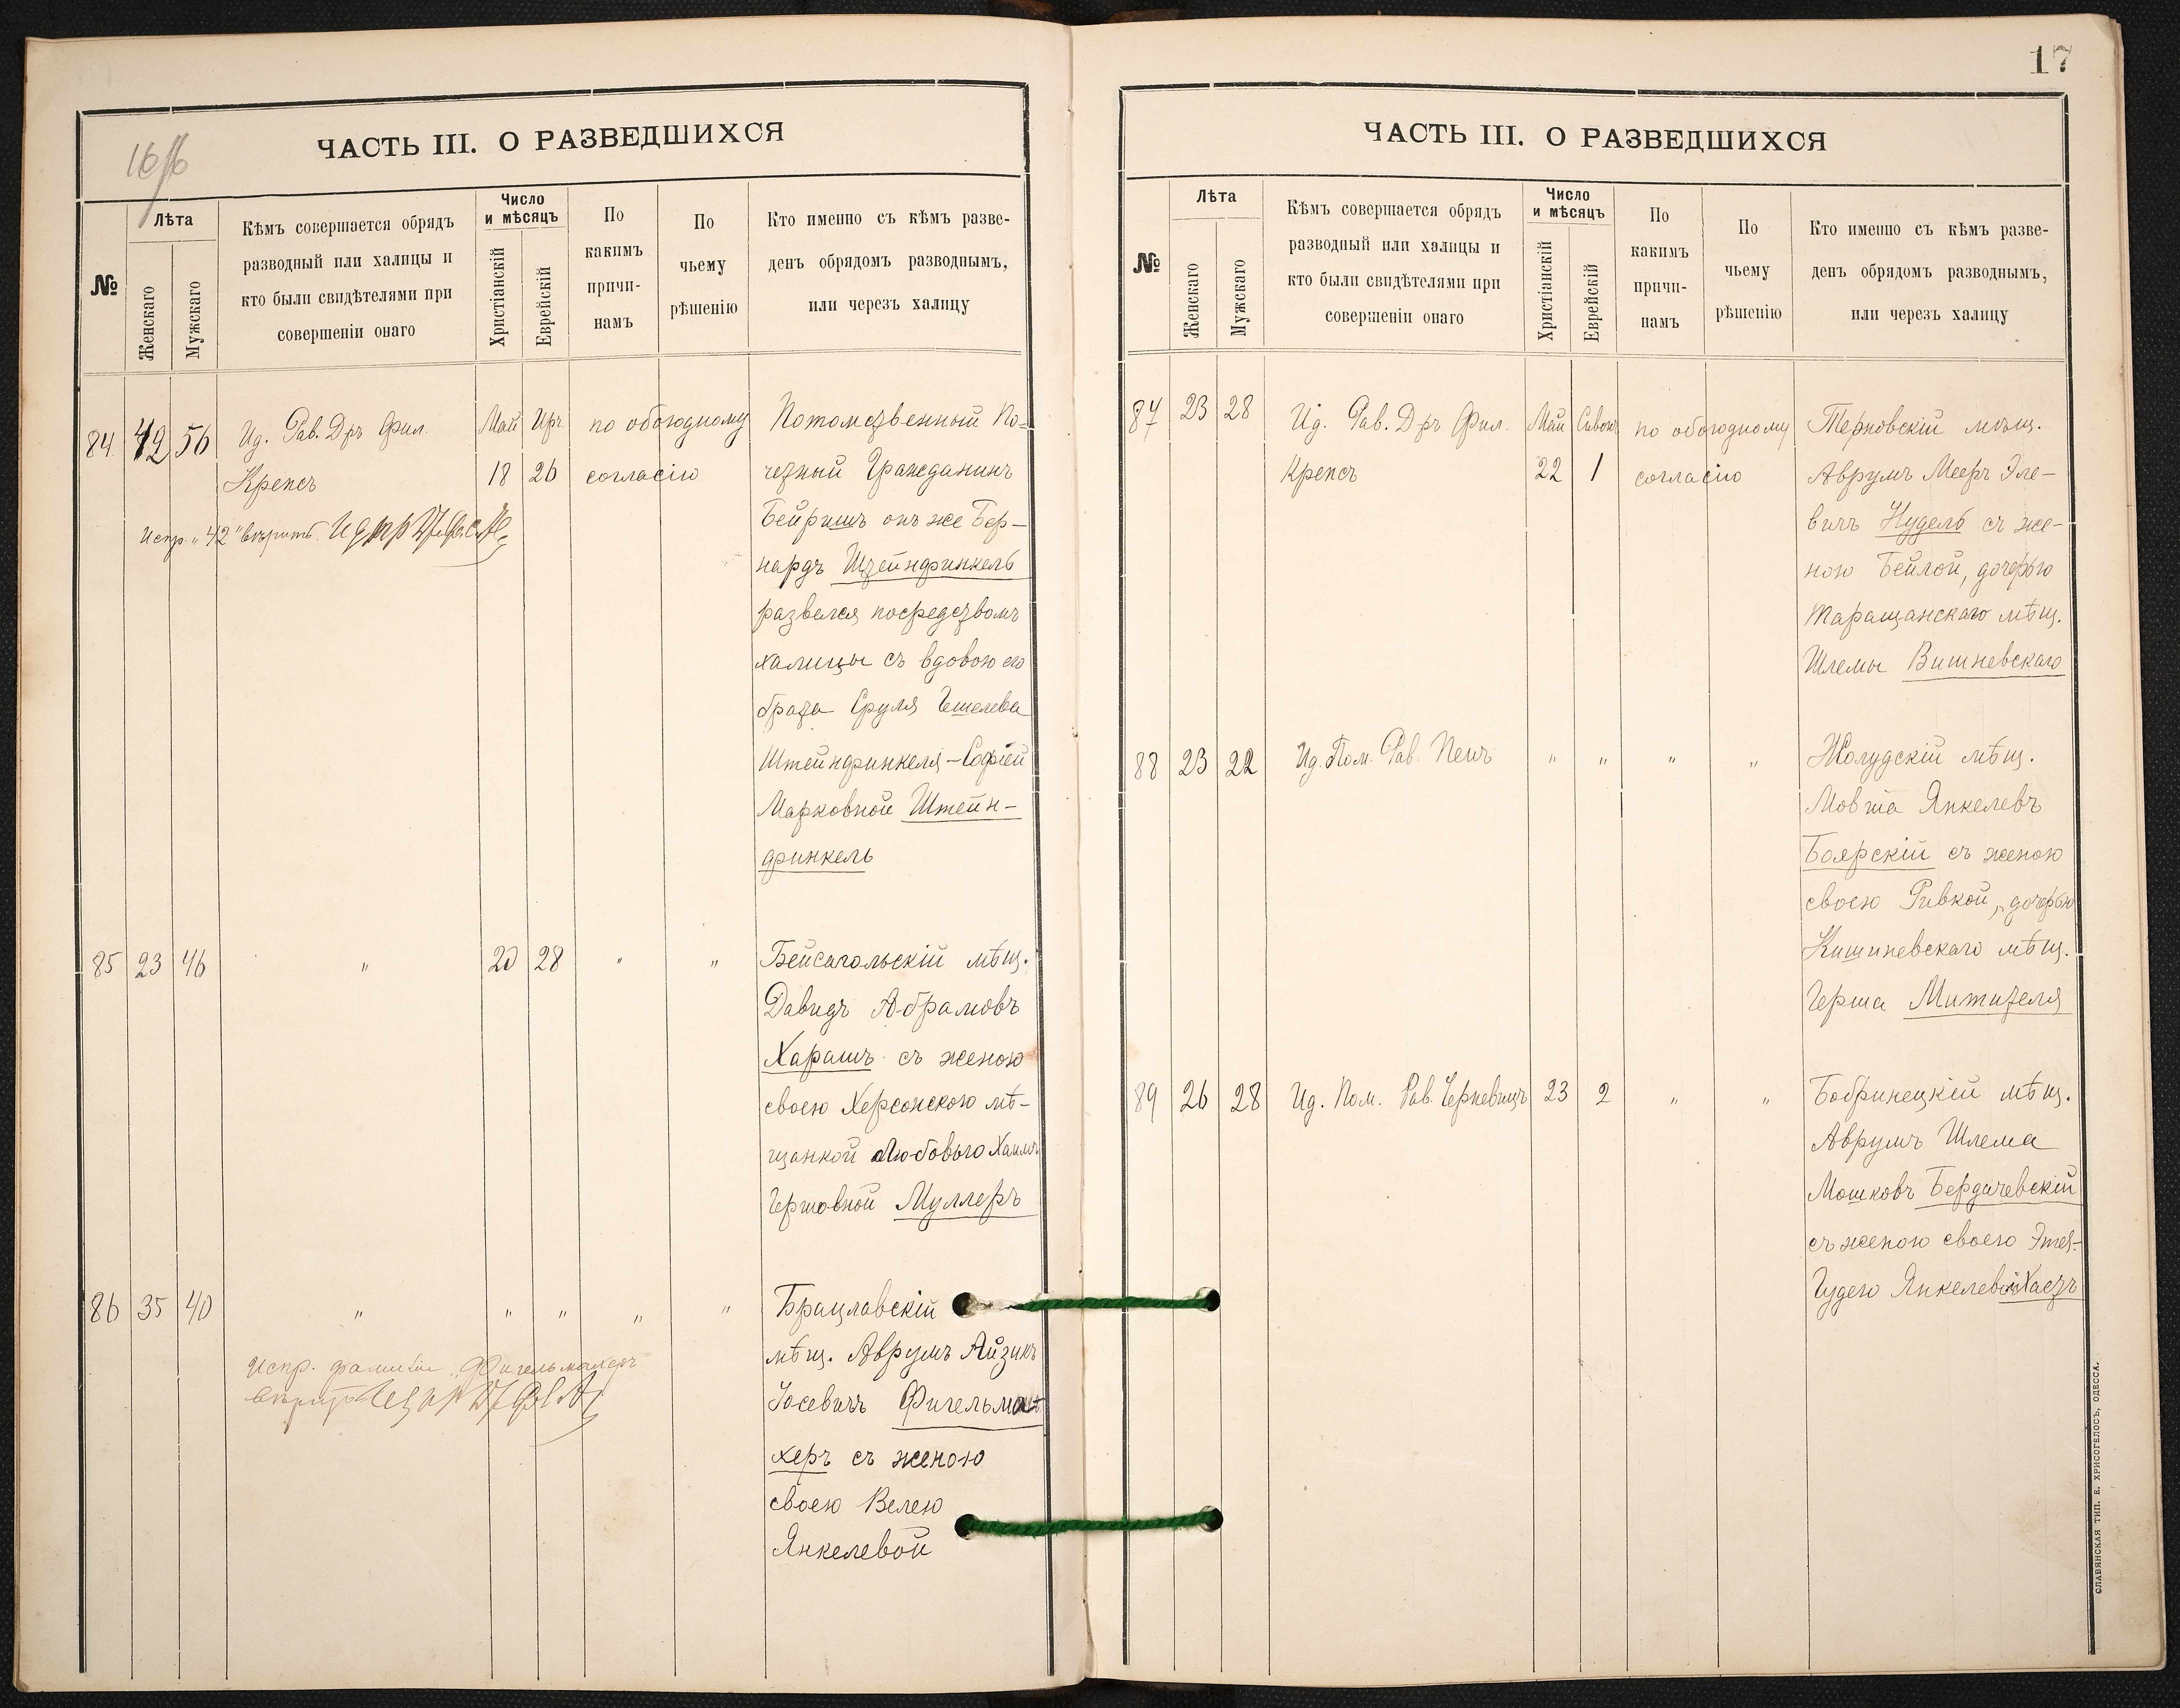 17
16/16
ЧАСТЬ III. О РАЗВЕДШИХСЯ
№
Лѣта
Женскаго
Мужскаго
Кѣмъ совершается обрядъ
разводный или халицы и
кто были свидѣтелями при
совершеніи онаго
Число
и мѣсяцъ
Христіанскій
Еврейскій
По
какимъ
причи-
намъ
По
чьему
рѣшенію
Кто именно съ кѣмъ разве-
денъ обрядомъ разводнымъ,
или черезъ халицу
84 42 56 Ид. Рав. Дръ Фил. Май Иръ по обоюдному Потомственный По-
Крепсъ 18 26 согласію четный Гражданинъ
Испр. „42" вѣрить.
Бейришъ онъ же Бер-
нардъ Штейнфинкель
развелся посредствомъ
халицы съ вдовою его
брата Сруля Гешелева
Штейнфинкеля - Софіей
Марковной Штейн-
финкель
85 23 46 " 20 28 " " Бейсагольскій мѣщ.
Давидъ Абрамовъ
Харашъ съ женою
своею Херсонскою мѣ-
щанкой Любовью Хаимъ
Гершовной Муллеръ
86 35 40 " " " " " Брацлавскій
мѣщ. Аврумъ Айзикъ
Іосевичъ Фигельма-
херъ съ женою
своею Велею
Янкелевой
Испр. фамиліи „Фигельмахеръ
вѣрить
ЧАСТЬ III. О РАЗВЕДШИХСЯ
№
Лѣта
Женскаго
Мужскаго
Кѣмъ совершается обрядъ
разводный или халицы и
кто были свидѣтелями при
совершеніи онаго
Число
и мѣсяцъ
Христіанскій
Еврейскій
По
какимъ
причи-
намъ
По
чьему
рѣшенію
Кто именно съ кѣмъ разве-
денъ обрядомъ разводнымъ,
или черезъ халицу
87 23 28 Ид. Рав. Дръ Фил. Май Сивонъ по обоюдному Терновскій мѣщ.
Крепсъ 22 1 согласію Аврумъ Мееръ Эле-
вичъ Нудель съ же-
ною Бейлой, дочерью
Таращанскаго мѣщ.
Шлемы Вишневскаго
88 23 22 Ид. Пом. Рав. Пенъ " " " " Жолудскій мѣщ.
Мовша Янкелевъ
Боярскій съ женою
своею Ривкой, дочерью
Кишиневскаго мѣщ.
Герша Митителя
89 26 28 Ид. Пом. Рав. Черневицъ 23 2 " " Бобринецкій мѣщ.
Аврумъ Шлема
Мошковъ Бердичевскій
съ женою своею Этей-
Гудею Янкелевой Хаетъ
СЛАВЯНСКАЯ ТИП. Е. ХРИСОГЕЛОСЪ, ОДЕССА.